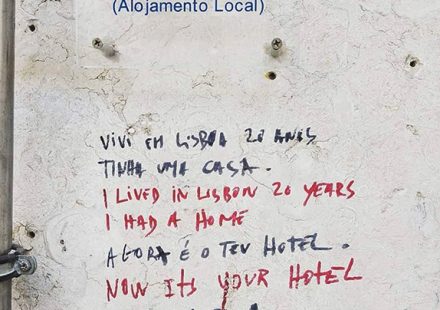 (Alojamento Local)
VIVI EM LISBOA 20 ANOS
TINHA UMA CASA.
I LIVED IN LISBON 20 YEARS
I HAD A HOME
AGORA É O TEU HOTEL.
NOW ITS YOUR HOTEL